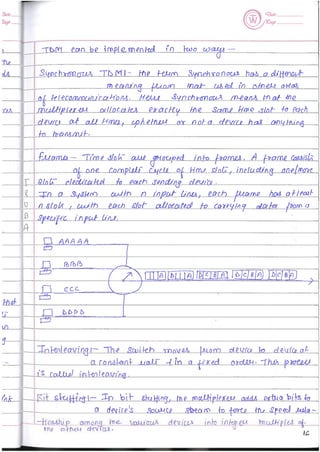 TDM can be implemented in two ways -
Synchronous TDM :- the term synchronous has a different
meaning from that used in other areas
of telecommunications. Here synchronous means that the
multiplexer allocates exactly the same time slot to each
device at all times, whether or not a device has anything
to transmit.
Frame - Time slots are grouped into frames. A frame consists
of one complete cycle of time slots, including one/more
slots dedicated to each sending device.
In a system with n input lines, each frame has at least
n slots, with each slot allocated to carrying data from a
specific input line.
AAAAA
BBBB
CCC
DDDD
A D B A D C B A D C B A D C B A
Interleaving :- The switch moves from device to device at
a constant rate & in a fixed order. This process
is called interleaving.
Bit stuffing :- In bit stuffing, the multiplexer adds extra bits to
a device's source stream to force the speed rela-
-tionship among the various devices into integer multiples of
the other devices.